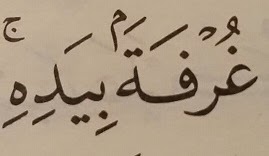 غُرْفَةَۢ بِيَدِهِۦۚ